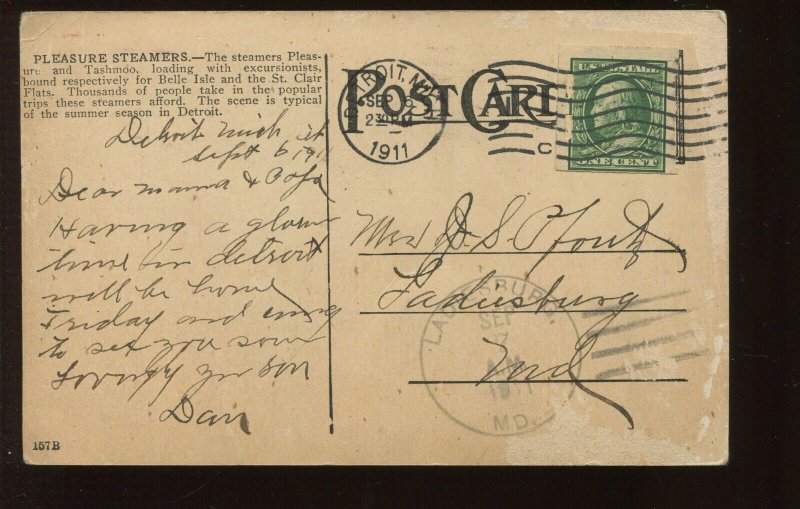 PLEASURE STEAMERS.—The steamers Pleas-
ure and Tashmoo, loading with excursionists,
bound respectively for Belle Isle and the St. Clair
Flats. Thousands of people take in the popular
trips these steamers afford. The scene is typical
of the summer season in Detroit.
POST CARD
DETROIT, MICH.
SEP 6
230PM
1911
U.S. POSTAGE
ONE CENT
Detroit Mich
Sept 6 19
Dear Mama & Papa
Having a glorious
time in Detroit
will be home
Friday and
to see you soon
Lovingly your son
Dan
Mrs J. S. Pfoutz
Ladiesburg
Md
LADIESBURG,
SEP
7
AM
1911
MD.
157B